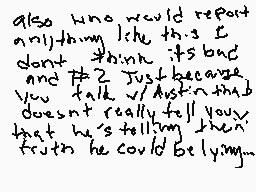 also who would report
anything like this I
dont think its bad
and #2 Just because
you talk w/ Austin that
doesnt really tell you
that he's telling then
truth he could be lying...